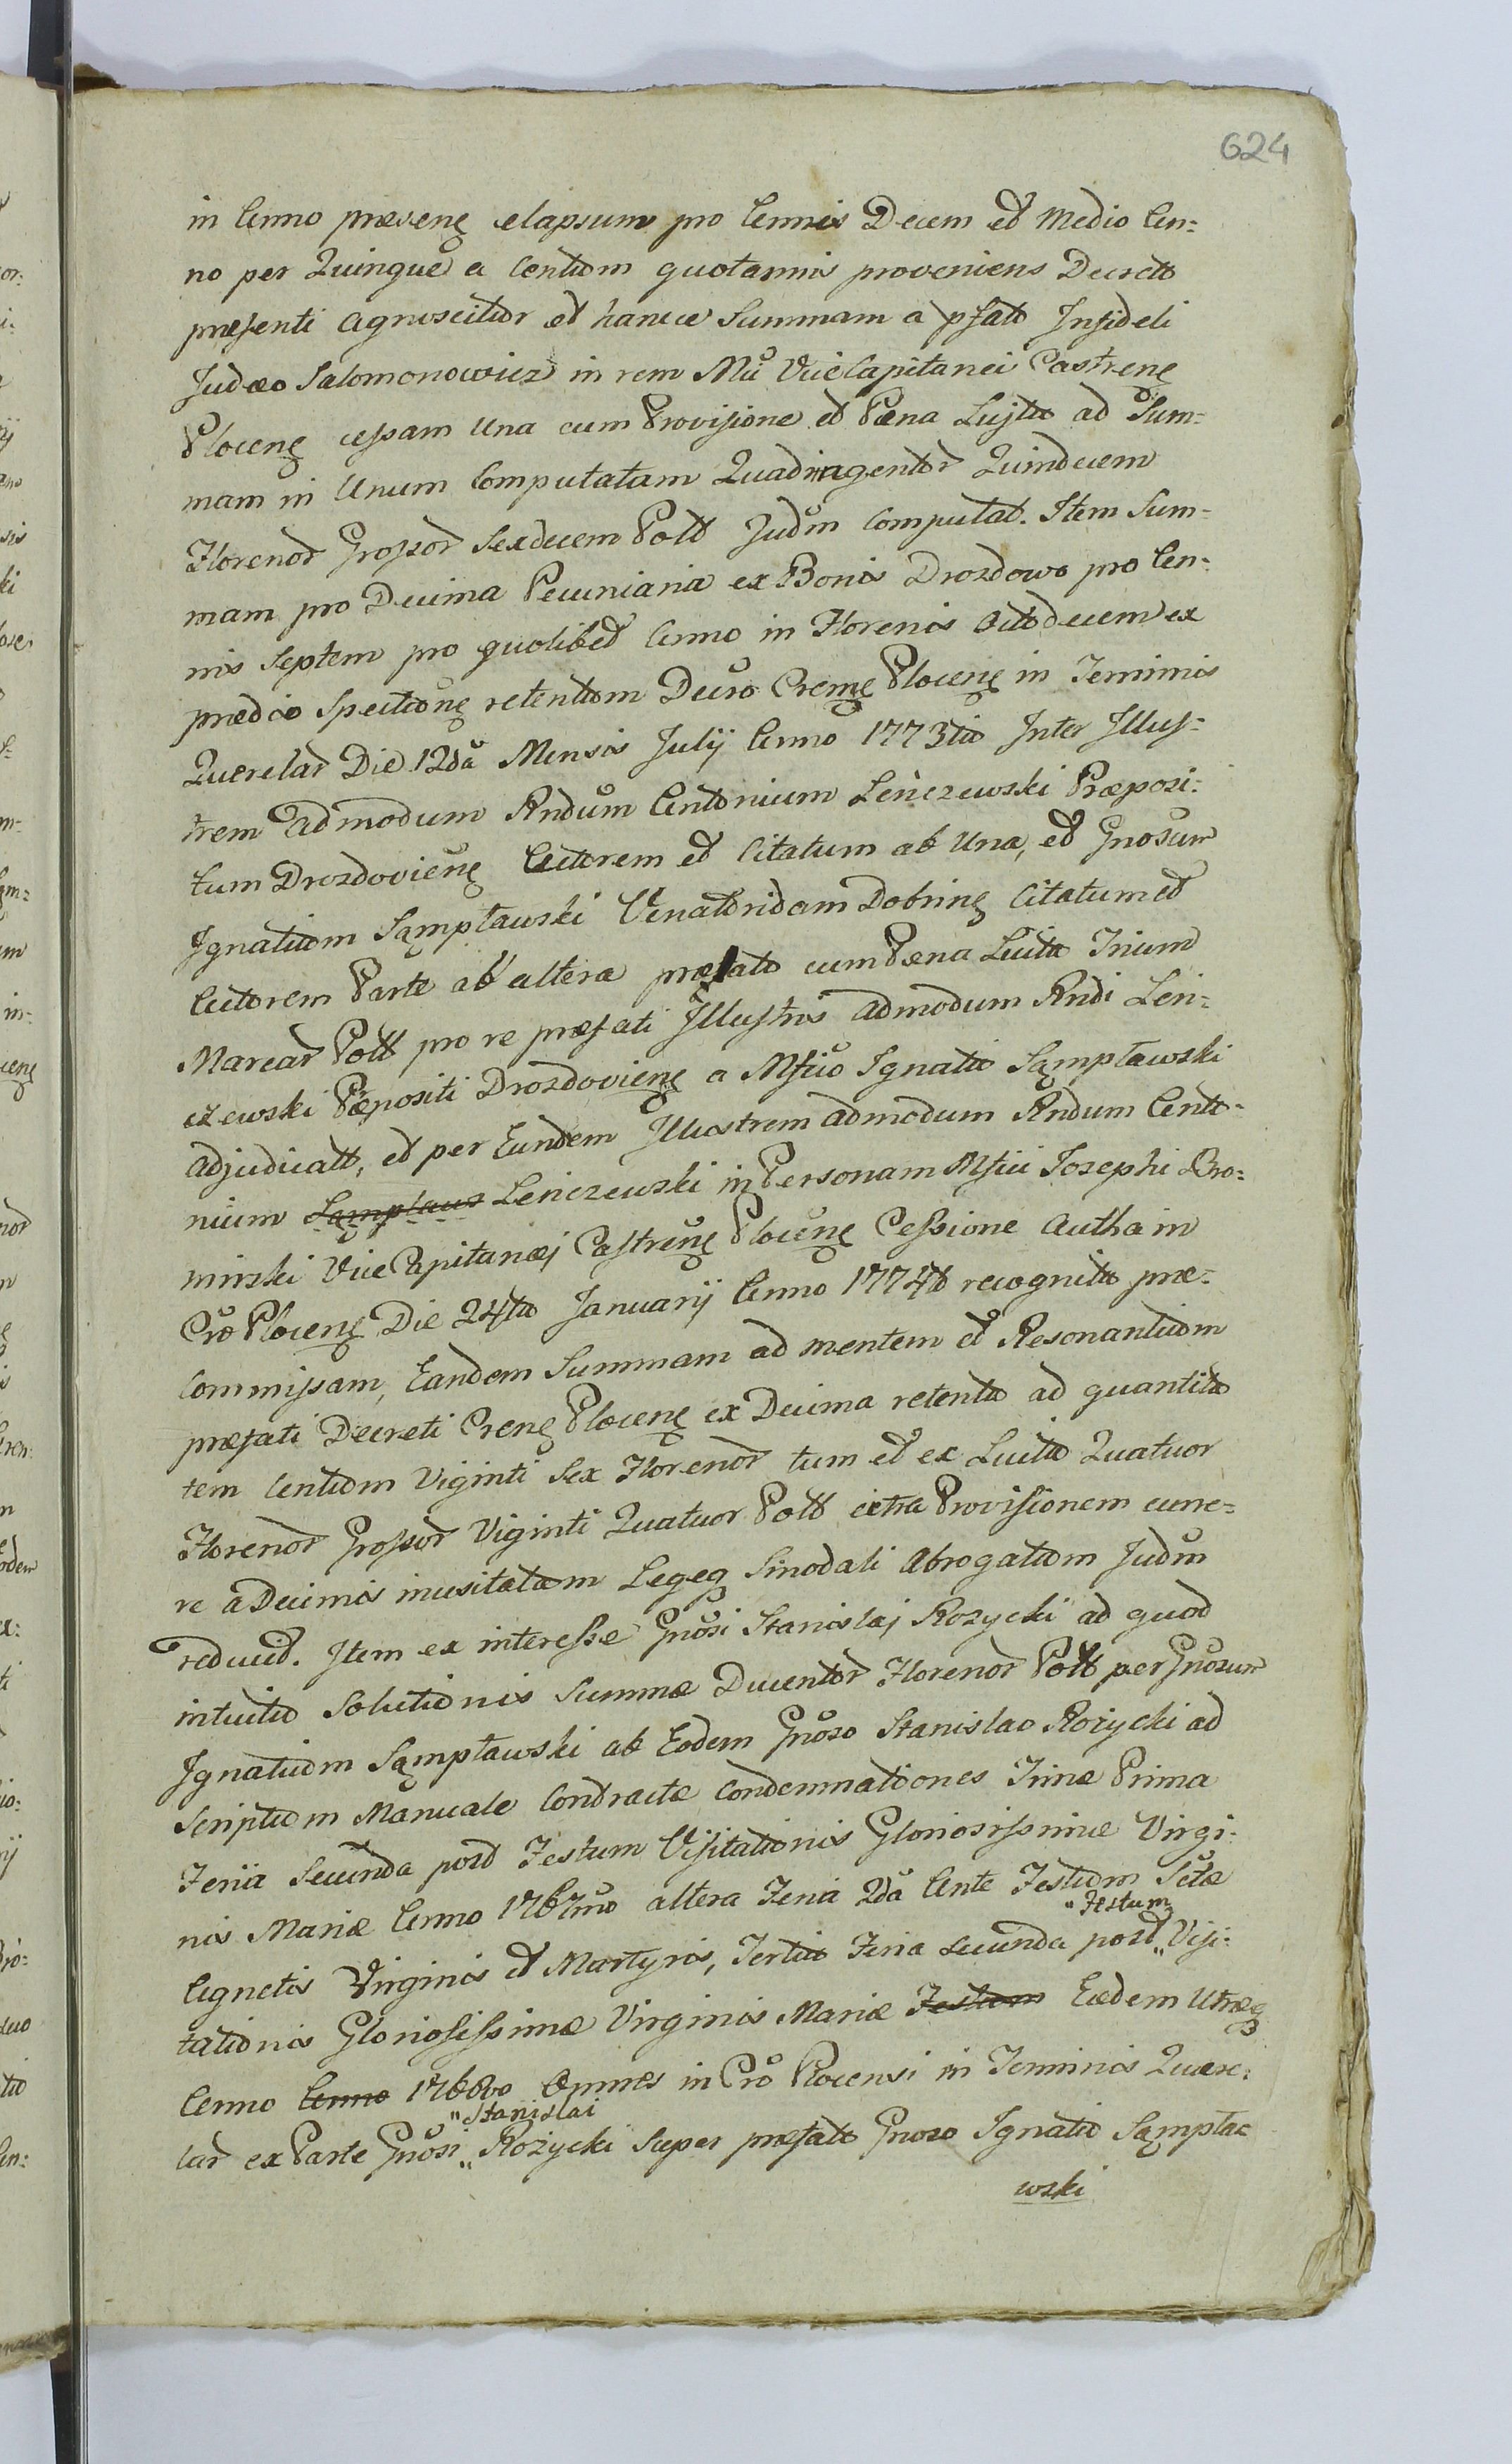 624
in Anno præsenȩ elapsum pro Annis Decem et Medio An:
no per Quinque a Centum quotannis proveniens Decreto
præsenti agnoscitur et hancce Summam a pfato Infideli
Judæo Salomonowicz in rem Mci ViceCapitanei Castrenȩ
Plocenȩ cessam una cum Provisione et Pæna Lujta ad Sum:
mam in Unum Computatam Quadringentor Quindecem
Florenor Grossor Sexdecem Poll Judm Computat. Item Sum:
mam pro Decima Pecuniaria ex Bonis Drozdowo pro An:
nis Septem pro quolibet Anno in Florenis Octodecem ex
prædio Spectionȩ retentam Decro Cremȩ Plocenȩ in Terminis
Querelar Die 12da Mensis Julij Anno 1773tio Inter Illus:
trem admodum Rndum Antonium Lenczewski Præposi:
tum Drozdovienȩ Actorem et Citatum ab Una, et Gnosum
Ignatium Sąmpławski Venatoridam Dobrinȩ Citatum et
Actorem Parte ab altera præfato cum Pæna Luita Trium
Marcar Poll pro re præfati Illustris admodum Rndi Len:
czewski Præpositi Drozdovienȩ a Mfico Ignatio Sąmpławski
adjudicato, et per Eundem Illustrem admodum Rndum Anto:
nium Sąmpławs Lenczewski in Personam Mfici Josephi Bro:
minski ViceCapitanej Castrenȩ Plocenȩ Cessione Autha in
Cro Plocenȩ Die 24ta Januarij Anno 1774to recognita præ:
Commissam, Eandem Summam ad mentem et Resonantiam
præfati Decreti Crenȩ Plocenȩ ex Decima retenta ad quantita
tem Centum Viginti Sex Florenor tum et ex Luita Quatuor
Florenor Grossor Viginti Quatuor Poll citra Provisionem curre:
re a Decimis inusitatam Legeq Sinodali Abrogatam Judm
reducit. Item ex interesse Gnosi Stanislaj Rozycki ad quod
intuitu Solutionis Summæ Ducentor Florenor Poll per Gnosum
Ignatium Sąmpławski ab Eodem Gnoso Stanislao Rożycki ad
Scriptum Manuale Contractæ Condemnationes Trinæ Prima
Feria Secunda post Festum Visitationis Gloriosissimæ Virgi:
nis Mariæ Anno 1767mo altera Feria 2da Ante Festum Sctæ
Agnetis Virginis et Martyris, Tertia Feria Secunda post "Festum" Visi:
tationis Gloriosissimæ Virginis Mariæ Festum Eædem Utræq
Anno Anno 1768vo Omnes in Cro Plocensi in Terminis Quære:
lar ex Parte Gnosi "Stanislai" Rożycki super præfato Gnoso Ignatio Sąmpła
wski